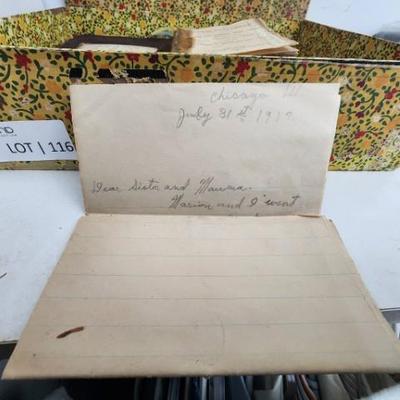 LOT | 116
Chicago Ill
July 31st 1917
Dear Sister and Mamma.
Marion and I went